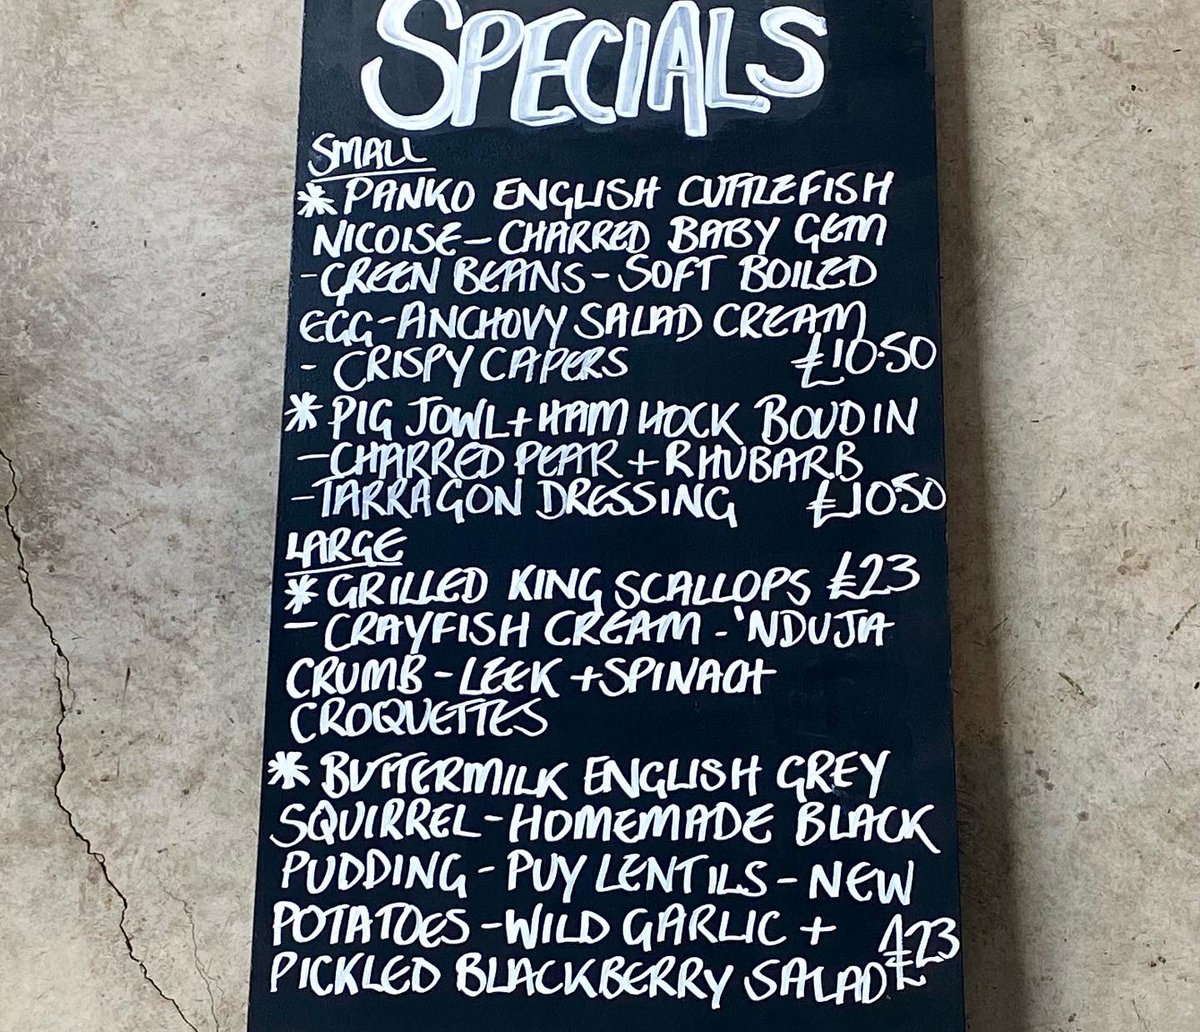 SPECIALS
SMALL
* PANKO ENGLISH CUTTLEFISH
NICOISE - CHARRED BABY GEM
- GREEN BEANS - SOFT BOILED
EGG - ANCHOVY SALAD CREAM
- CRISPY CAPERS £10.50
* PIG JOWL + HAM HOCK BOUDIN
- CHARRED PEAR + RHUBARB
- TARRAGON DRESSING £10.50
LARGE
* GRILLED KING SCALLOPS £23
- CRAYFISH CREAM - 'NDUJA
CRUMB - LEEK + SPINACH
CROQUETTES
* BUTTERMILK ENGLISH GREY
SQUIRREL - HOMEMADE BLACK
PUDDING - PUY LENTILS - NEW
POTATOES - WILD GARLIC +
PICKLED BLACKBERRY SALAD £23